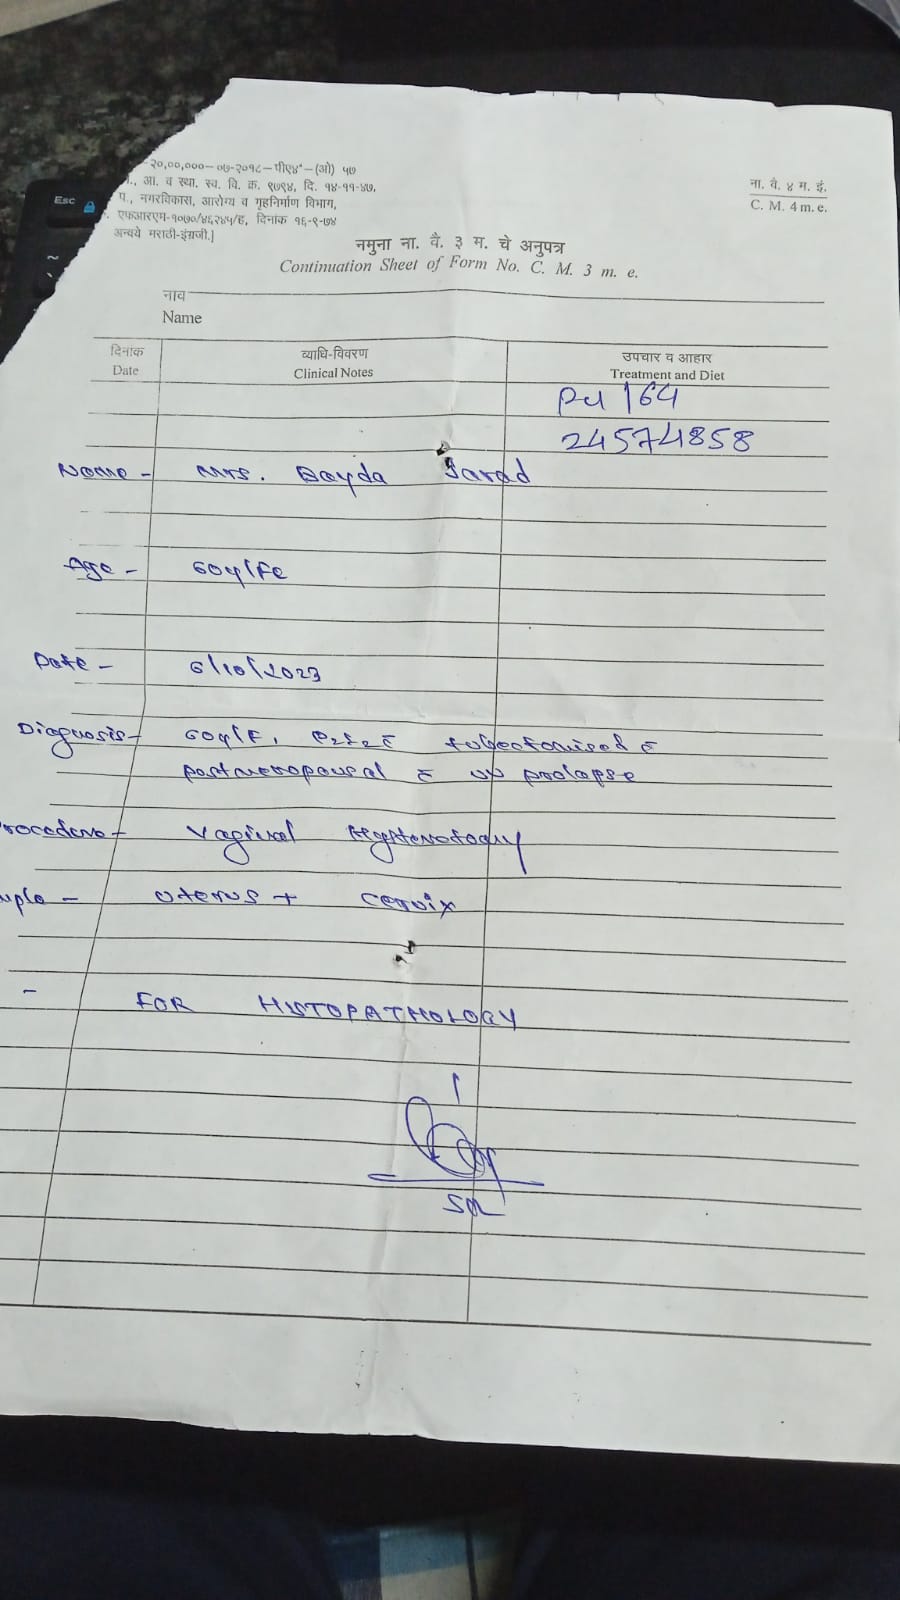 -२०,००,०००-०७-२०१८-पीए४*-(ओ) ५७
., आ. व स्था. स्व. वि. क्र. ९७९४, दि. १४-११-४७,
प., नगरविकास, आरोग्य व गृहनिर्माण विभाग,
एफआरएम-१०७०/४६२४५/ह, दिनांक १६-९-७४
अन्वये मराठी-इंग्रजी.]
ना. वै. ४ म. इं.
C. M. 4 m. e.
नमुना ना. वै. ३ म. चे अनुपत्र
Continuation Sheet of Form No. C. M. 3 m. e.
नाव
Name
दिनांक व्याधि-विवरण उपचार व आहार
Date Clinical Notes Treatment and Diet
164
24574858
Name - Mrs. Dayda Jarad
Age - 60y/Fe
Date - 6/10/2023
Diagnosis - 60y/F, P2L2 c̄ tubectomised c̄
postmenopausal c̄ uv prolapse
rocedure - Vaginal Hysterectomy
mple - Uterus + Cervix
- FOR HISTOPATHOLOGY
SR
Esc